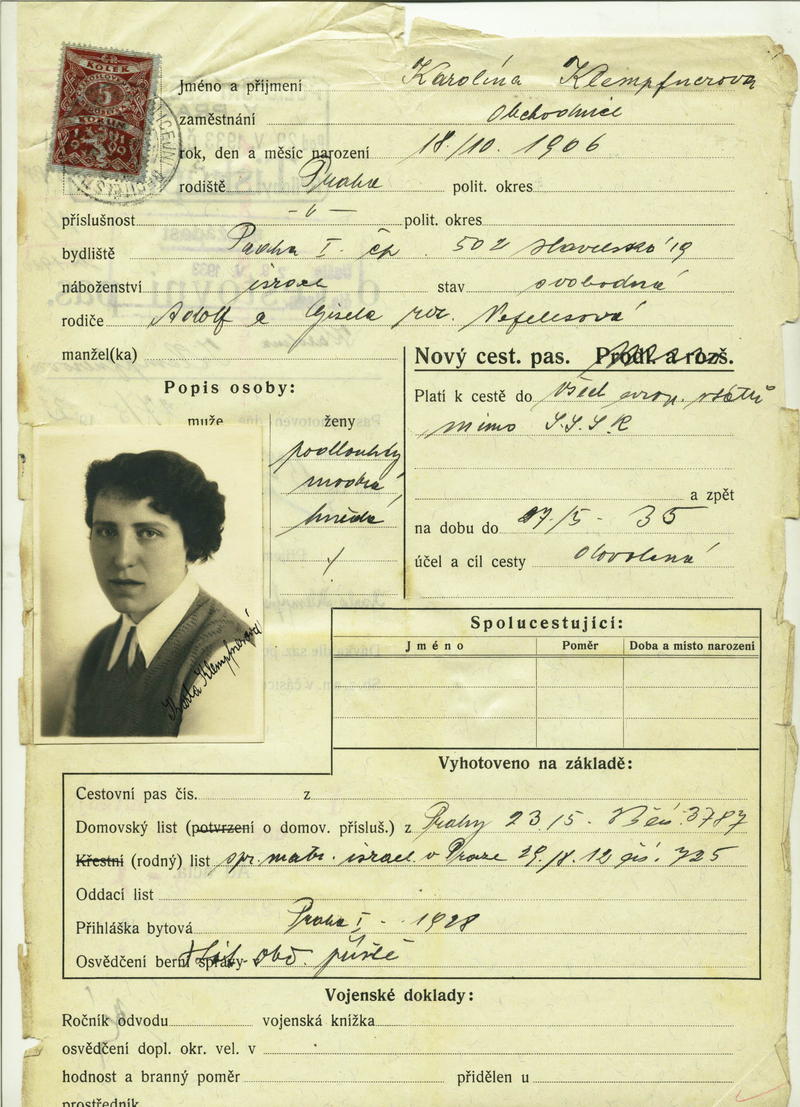 KOLEK
5
KORUN
Jméno a příjmení Karolína Klempfnerova
zaměstnání obchodnice
rok, den a měsíc narození 18/10. 1906
rodiště Praha polit. okres
příslušnost -"- polit. okres
bydliště Praha I. čp. 502 Havelská 19
náboženství israel stav svobodná
rodiče Adolf a Gisela roz. Nefelesová
manžel(ka)
Nový cest. pas. Prodl. a rozš.
Popis osoby:
muže ženy
podlouhlý
modrá
hnědá
Platí k cestě do všech evrop. států
mimo S.S.S.R
a zpět
na dobu do 27/5 - 35
účel a cíl cesty dovolená
Karla Klempfnerová
Spolucestující:
Jméno Poměr Doba a místo narození
Vyhotoveno na základě:
Cestovní pas čís. z
Domovský list (potvrzení o domov. přísluš.) z Prahy 23/5 - čís. 3787
Křestní (rodný) list spr. matr. israel. v Praze 29./X. 12 čís. 725
Oddací list
Přihláška bytová Praha I - 1928
Osvědčení berní správy
Vojenské doklady:
Ročník odvodu vojenská knížka
osvědčení dopl. okr. vel. v
hodnost a branný poměr přidělen u
prostředník